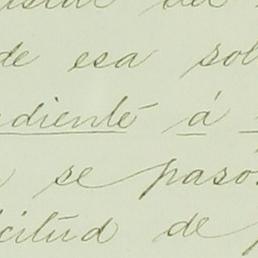 de esa sol
ndiente á
se paso
icitud de p